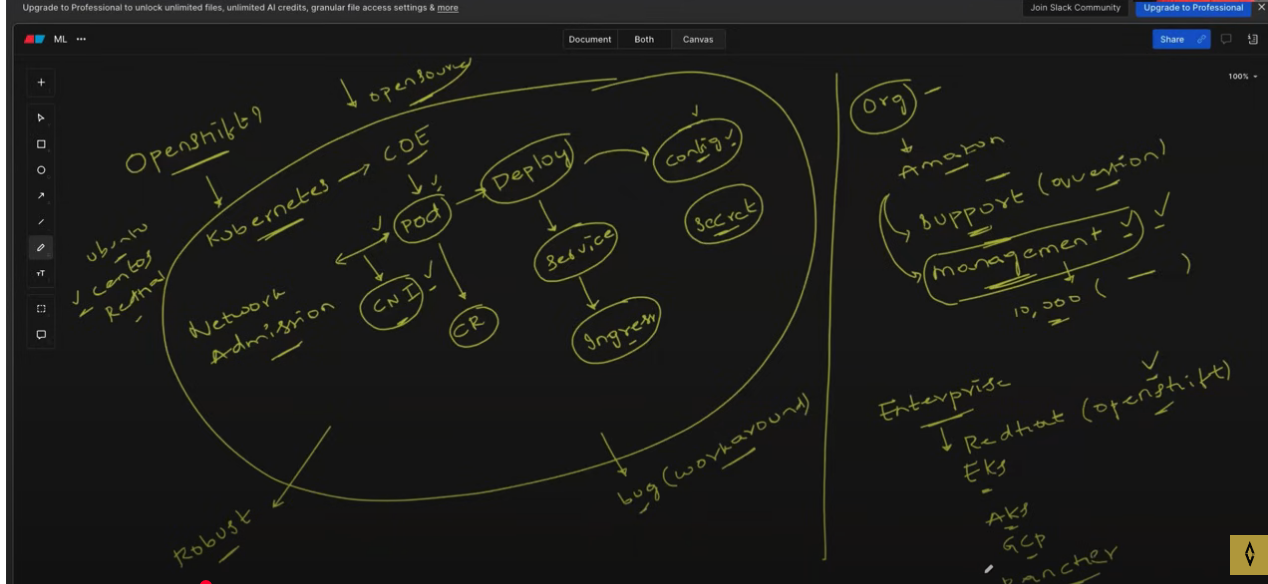 Upgrade to Professional to unlock unlimited files, unlimited AI credits, granular file access settings & more
Join Slack Community
Upgrade to Professional
ML
Document
Both
Canvas
Share
100%
tT
opensource
Openshift?
Kubernetes
COE
Pod
Deploy
Config
Secret
Service
Ingress
CNI
CR
Network
Admission
ubuntu
centos
Redhat
Robust
bug (workaround)
Org
Amazon
Support (question)
management
10,000 ( )
Enterprise
Redhat (openshift)
EKS
AKS
GCP
Rancher